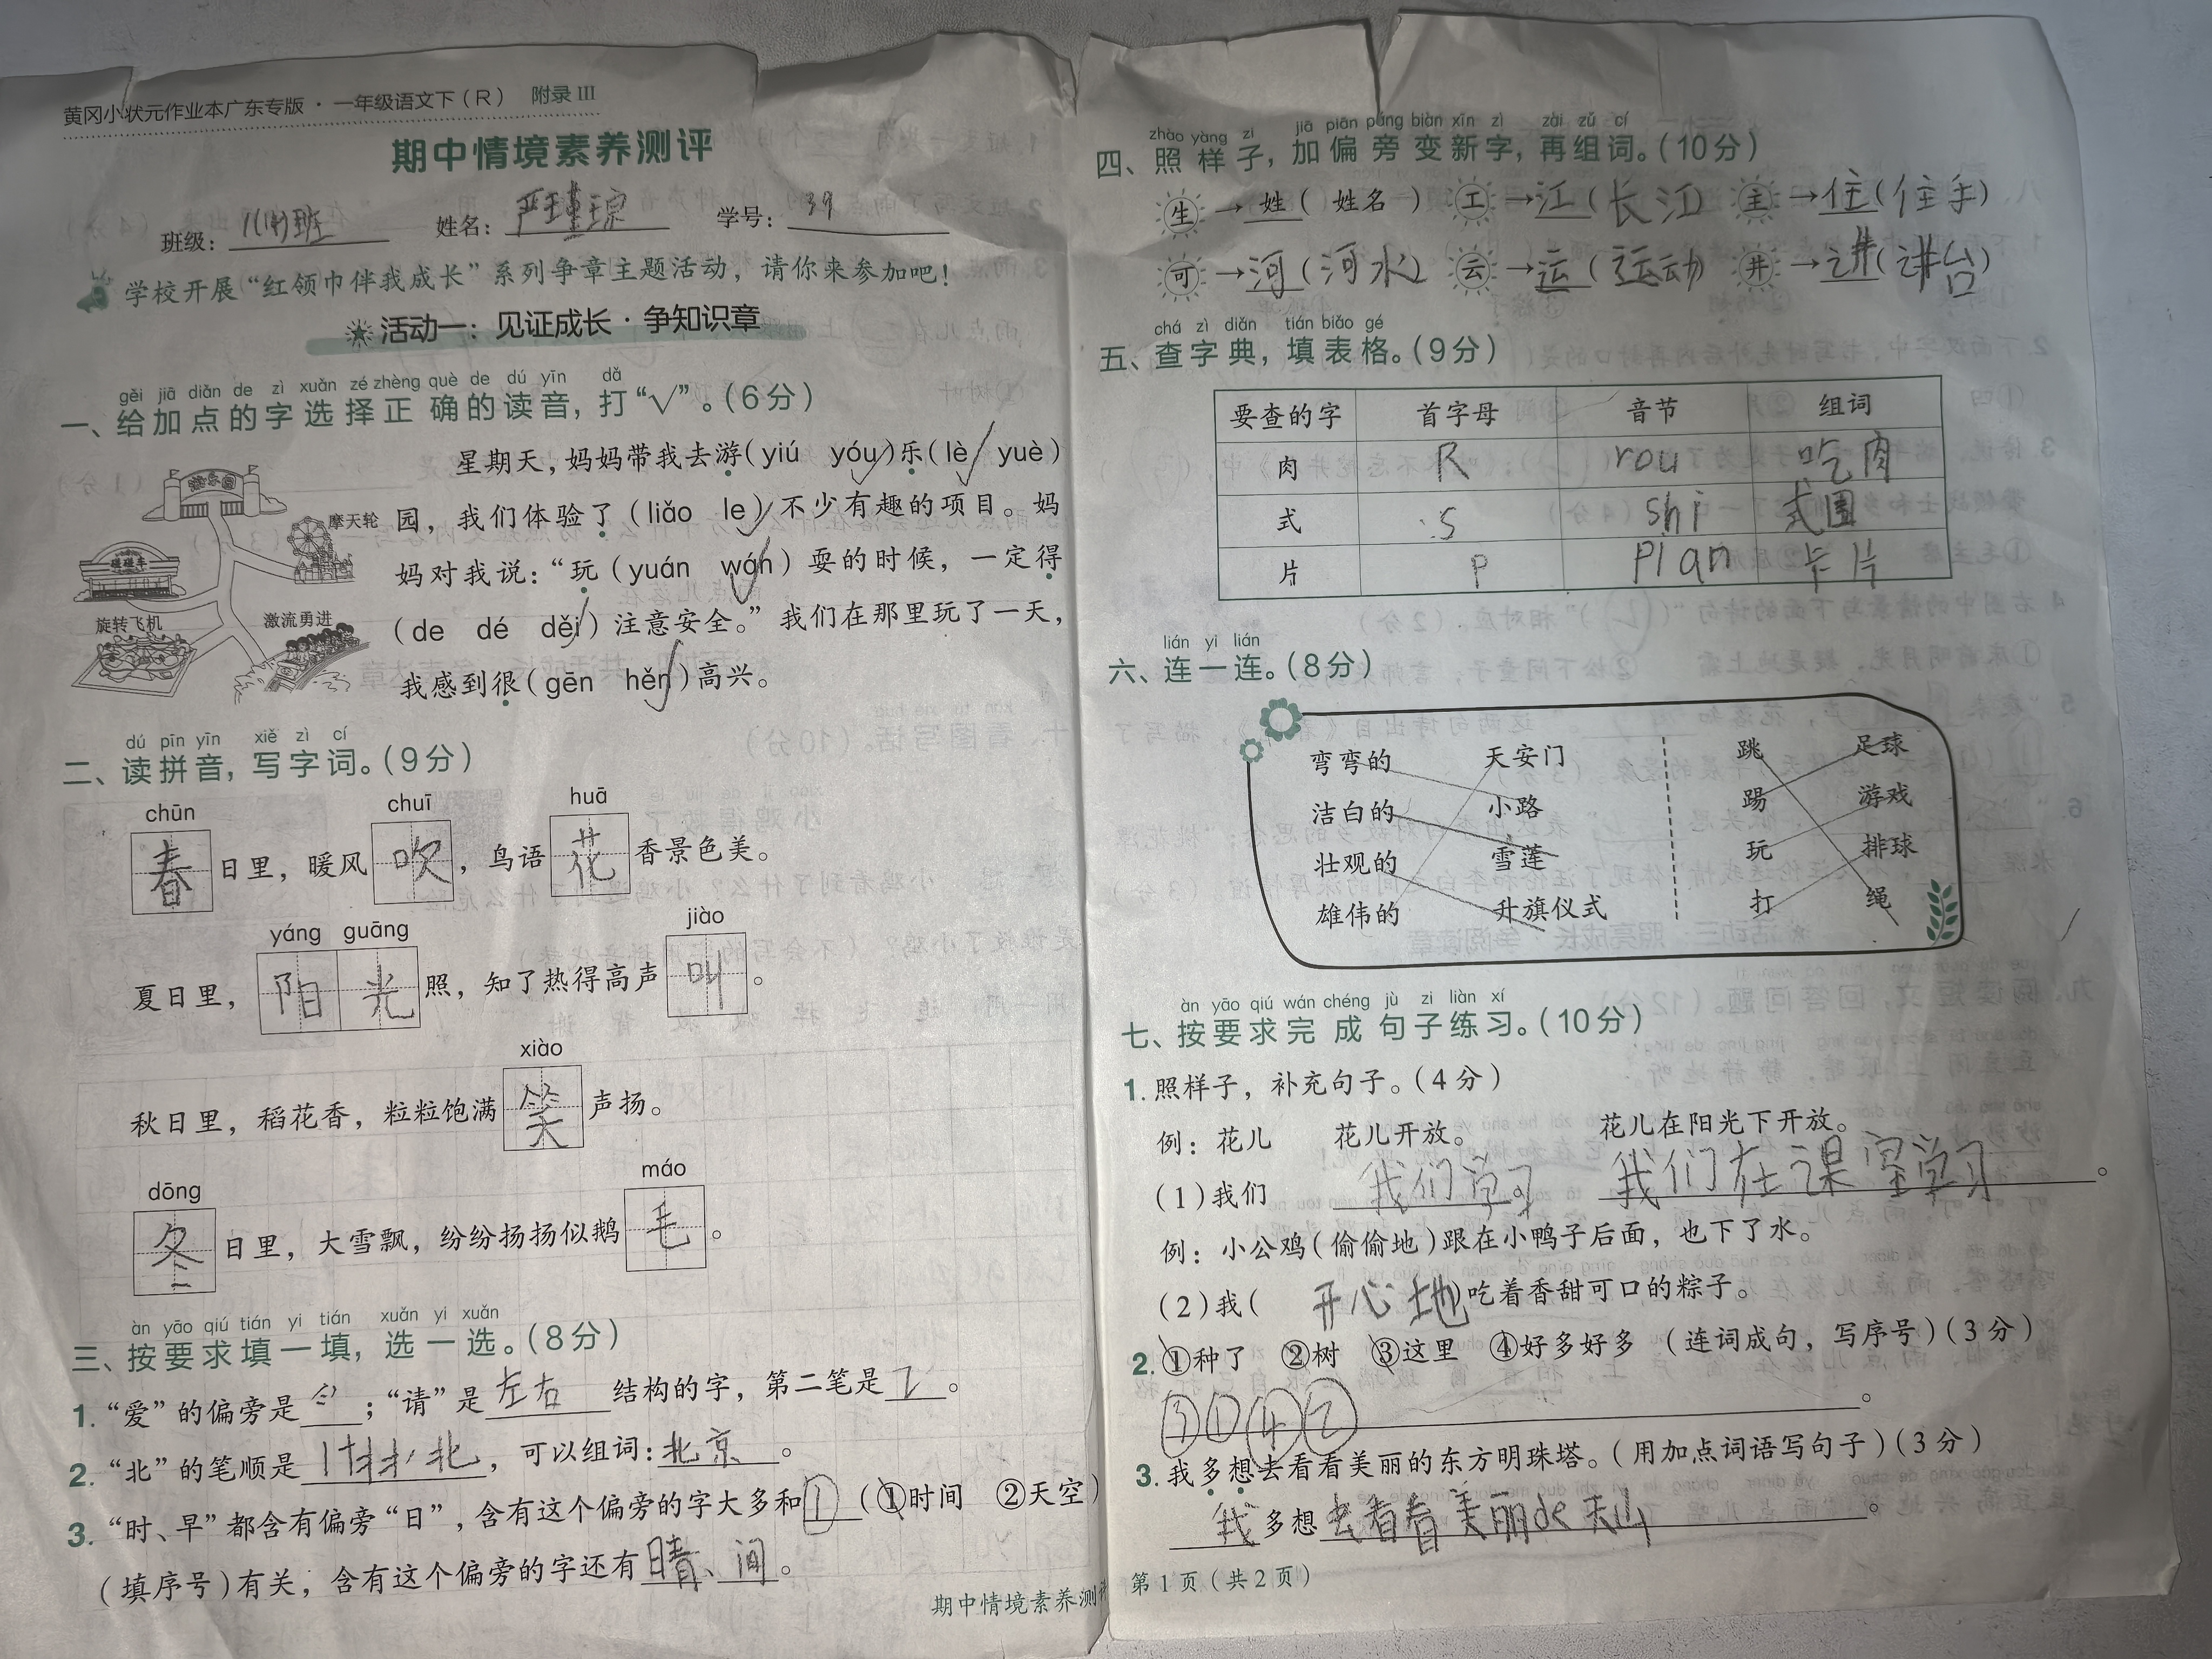 黄冈小状元作业本广东专版·一年级语文下(R) 附录III
期中情境素养测评
班级: 姓名: 学号: 39
学校开展“红领巾伴我成长”系列争章主题活动,请你来参加吧!
活动一:见证成长·争知识章
gěi jiā diǎn de zì xuǎn zé zhèng què de dú yīn dǎ
一、给加点的字选择正确的读音,打“√”。(6分)
游乐园
摩天轮
碰碰车
旋转飞机
激流勇进
星期天,妈妈带我去游(yiú yóu√)乐(lè√ yuè)
园,我们体验了(liǎo le√)不少有趣的项目。妈
妈对我说:“玩(yuán wán√)耍的时候,一定得
(de dé děi√)注意安全。”我们在那里玩了一天,
我感到很(gēn hěn√)高兴。
dú pīn yīn xiě zì cí
二、读拼音,写字词。(9分)
chūn chuī huā
春日里,暖风吹,鸟语花香景色美。
yáng guāng jiào
夏日里,阳光照,知了热得高声叫。
xiào
秋日里,稻花香,粒粒饱满笑声扬。
dōng máo
冬日里,大雪飘,纷纷扬扬似鹅毛。
àn yāo qiú tián yi tián xuǎn yi xuǎn
三、按要求填一填,选一选。(8分)
1. “爱”的偏旁是 ;“请”是左右结构的字,第二笔是 。
2. “北”的笔顺是 北,可以组词:北京。
3. “时、早”都含有偏旁“日”,含有这个偏旁的字大多和①(①时间 ②天空)
(填序号)有关,含有这个偏旁的字还有晴、间。
期中情境素养测评
zhào yàng zi jiā piān páng biàn xīn zì zài zǔ cí
四、照样子,加偏旁变新字,再组词。(10分)
生→姓(姓名) 工→江(长江) 主→住(住手)
可→河(河水) 云→运(运动) 井→讲(讲台)
chá zì diǎn tián biǎo gé
五、查字典,填表格。(9分)
要查的字 首字母 音节 组词
肉 R rou 吃肉
式 S shi 式
片 P pian 卡片
lián yi lián
六、连一连。(8分)
弯弯的 天安门 跳 足球
洁白的 小路 踢 游戏
壮观的 雪莲 玩 排球
雄伟的 升旗仪式 打 绳
àn yāo qiú wán chéng jù zi liàn xí
七、按要求完成句子练习。(10分)
1. 照样子,补充句子。(4分)
例:花儿 花儿开放。 花儿在阳光下开放。
(1)我们 我们学习。 我们在课室学习。
例:小公鸡(偷偷地)跟在小鸭子后面,也下了水。
(2)我(开心地)吃着香甜可口的粽子。
2. ①种了 ②树 ③这里 ④好多好多 (连词成句,写序号)(3分)
③①④②。
3. 我多想去看看美丽的东方明珠塔。(用加点词语写句子)(3分)
我多想去看看美丽de天山。
第1页(共2页)